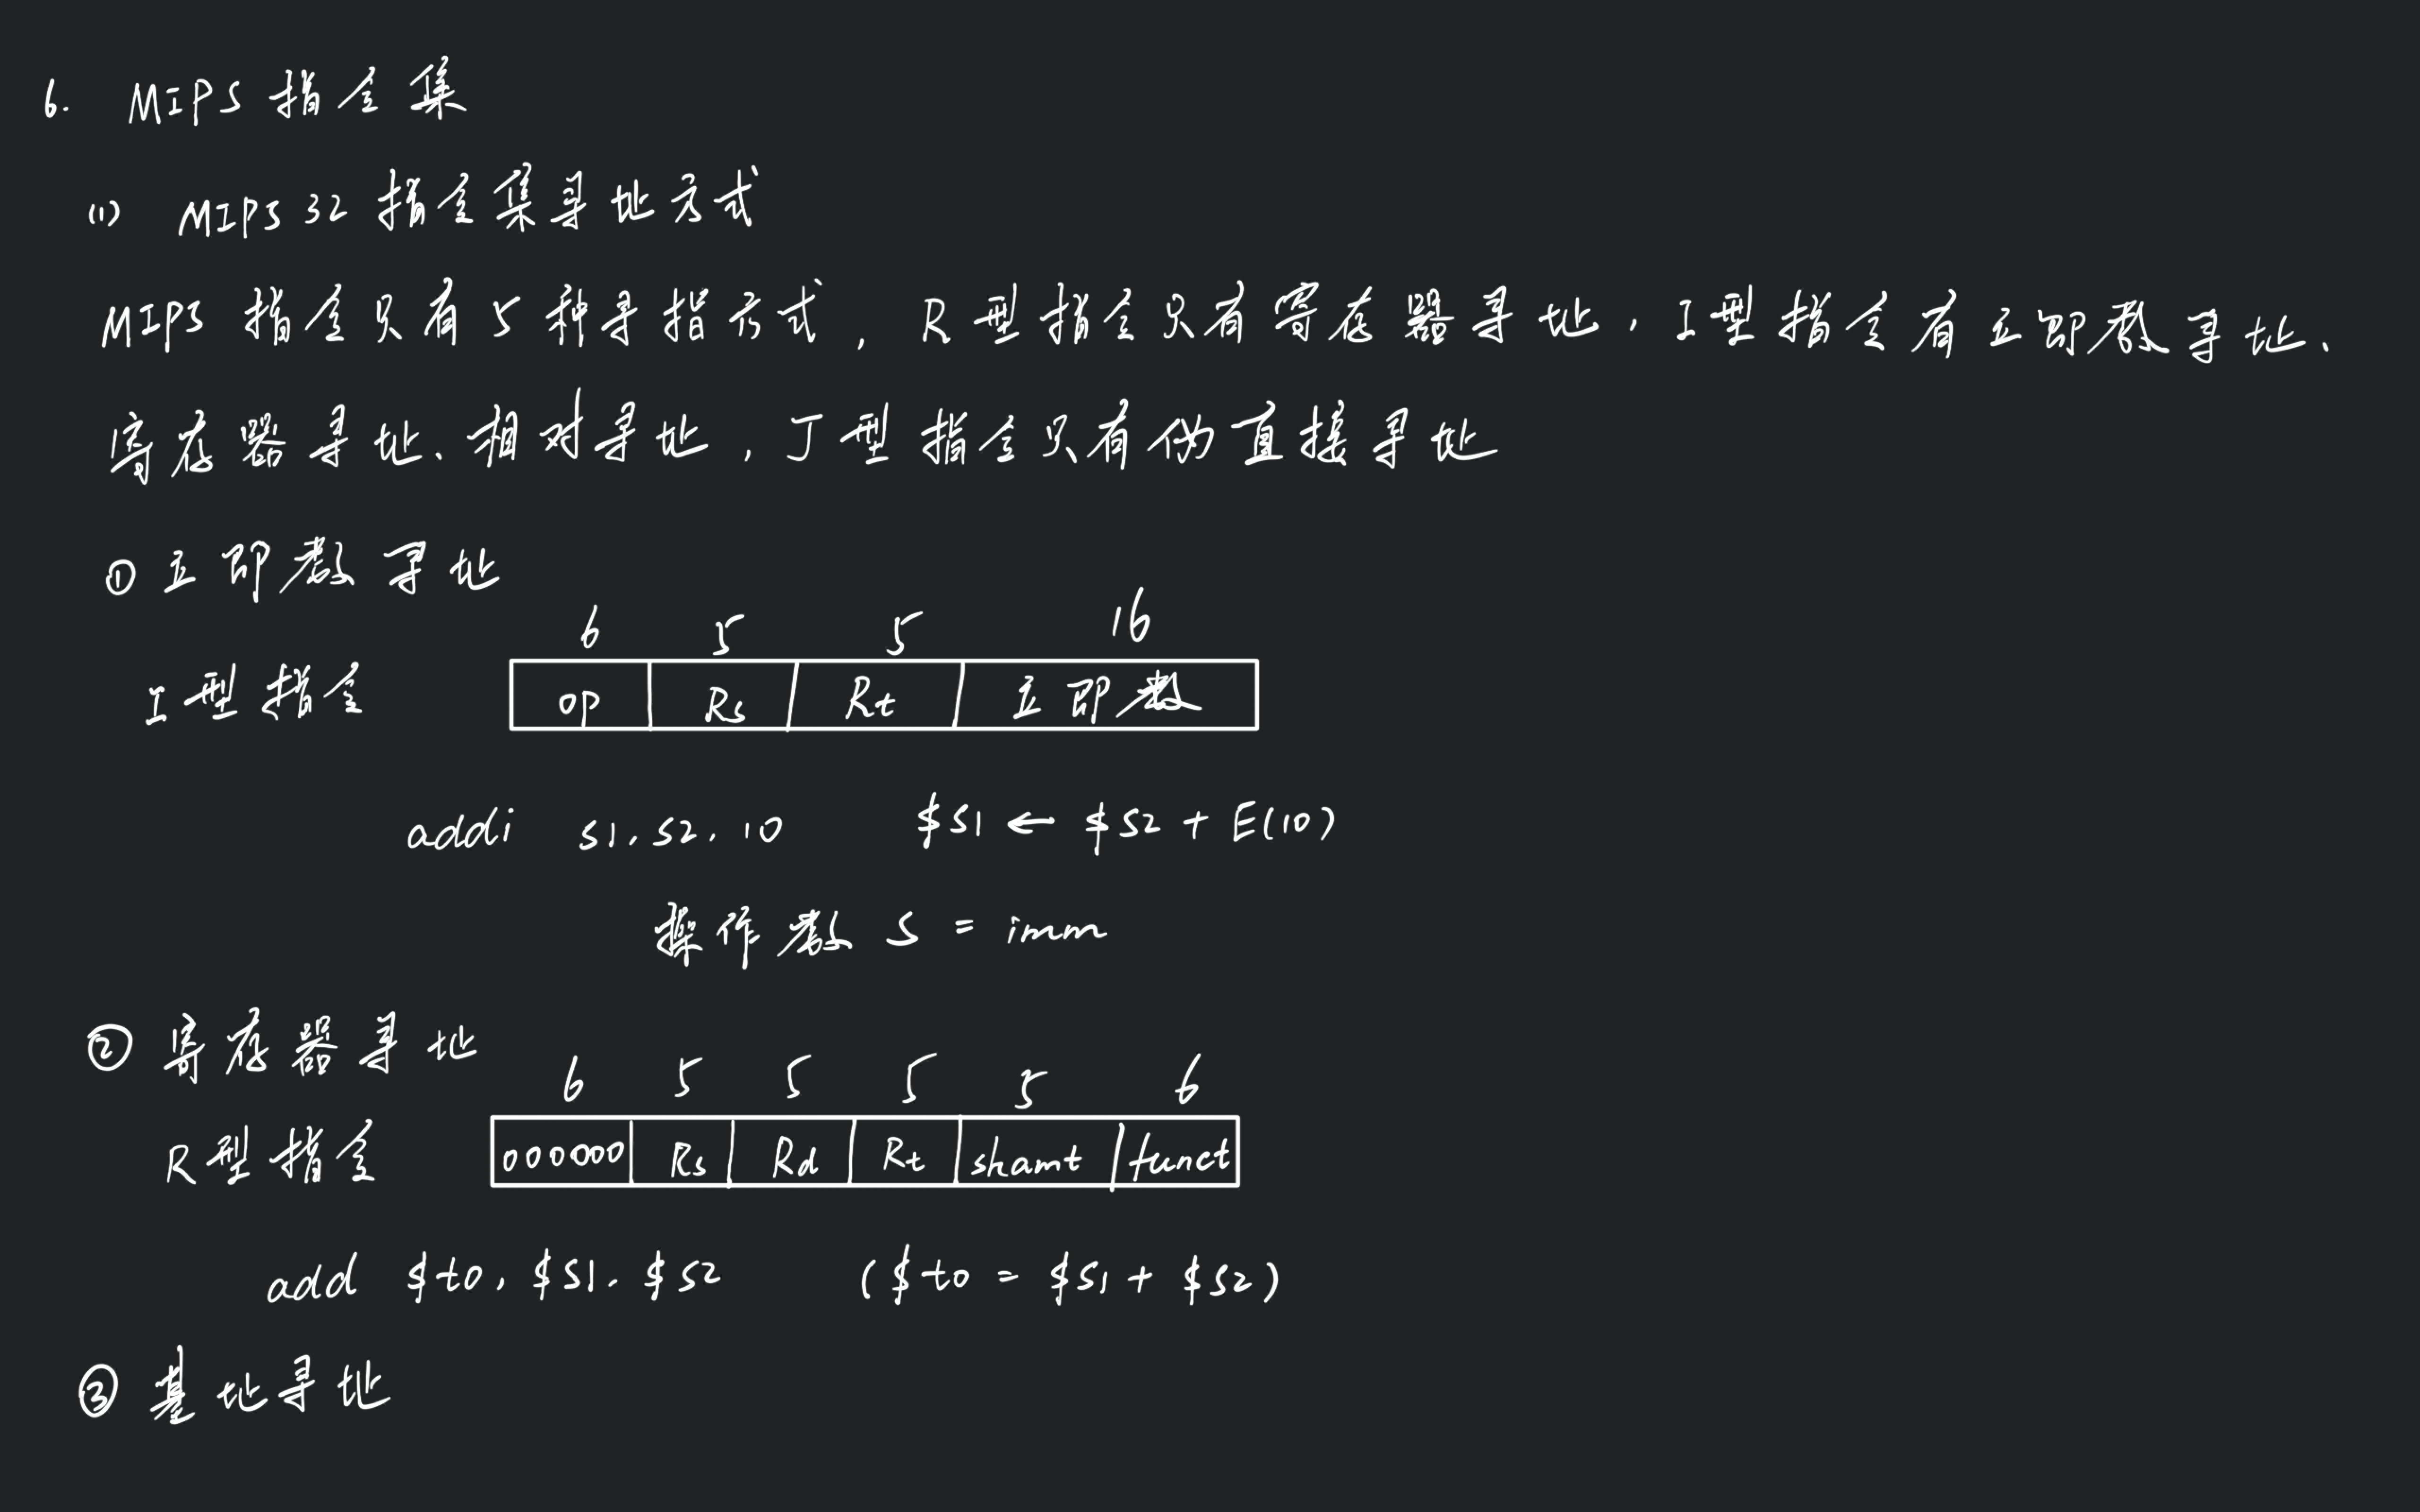 6. MIPS指令集
(1) MIPS32指令集寻址方式
MIPS指令只有5种寻指方式,R型指令只有寄存器寻址,I型指令有立即数寻址、
寄存器寻址、相对寻址,J型指令只有伪直接寻址
①立即数寻址
6 5 5 16
I型指令 op Rs Rt 立即数
addi s1,s2,10 $s1 ← $s2 + E(10)
操作数 S = imm
②寄存器寻址
6 5 5 5 5 6
R型指令 000000 Rs Rd Rt shamt funct
add $t0,$s1,$s2 ($t0 = $s1 + $s2)
③基址寻址